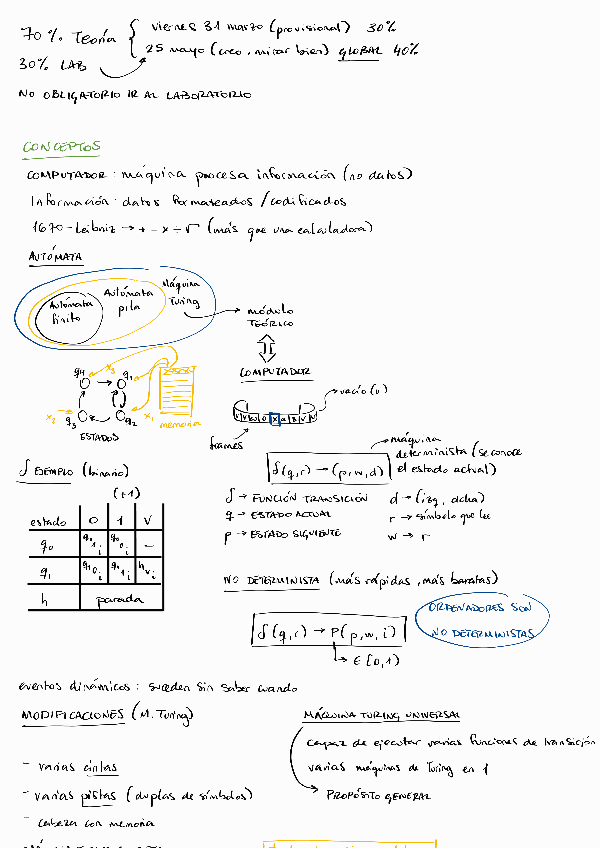 70% Teoría { viernes 31 marzo (provisional) 30%
25 mayo (creo, mirar bien) GLOBAL 40%
30% LAB
NO OBLIGATORIO IR AL LABORATORIO
CONCEPTOS
COMPUTADOR: máquina procesa información (no datos)
Información: datos formateados / codificados
1670-Leibniz → + - × ÷ √ (más que una calculadora)
AUTÓMATA
Autómata finito
Autómata pila
Máquina Turing
módulo TEÓRICO
COMPUTADOR
q4 x3 q1
x2 q3 q2 x1
ESTADOS
memoria
vacío (v)
frames
δ EJEMPLO (binario)
(+1)
estado 0 1 V
q0 q1 1 i q0 0 i –
q1 q1 0 i q1 1 i h v i
h parada
máquina determinista (se conoce el estado actual)
δ(q,r) → (p,w,d)
δ → FUNCIÓN TRANSICIÓN d → (izq, dcha)
q → ESTADO ACTUAL r → símbolo que lee
p → ESTADO SIGUIENTE w → r
NO DETERMINISTA (más rápidas, más baratas)
δ(q,r) → P(p,w,i)
→ ∈ [0,1)
ORDENADORES SON
NO DETERMINISTAS
eventos dinámicos: suceden sin saber cuando
MODIFICACIONES (M. Turing)
- varias cintas
- varias pistas (duplas de símbolos)
- cabeza con memoria
MÁQUINA TURING UNIVERSAL
capaz de ejecutar varias funciones de transición
varias máquinas de Turing en 1
→ PROPÓSITO GENERAL